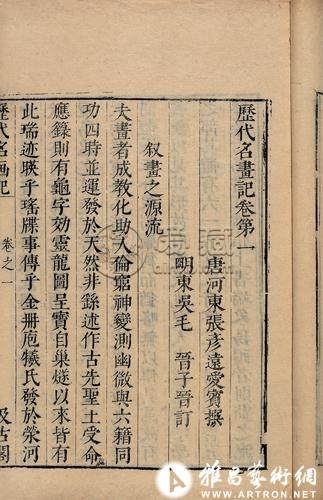 歷代名畫記卷第一
唐河東張彥遠愛賓撰
明東吳毛 晉子晉訂
叙畫之源流
夫畫者成教化助人倫窮神變測幽微與六籍同
功四時並運發於天然非繇述作古先聖王受命
應籙則有龜字效靈龍圖呈寶自巢燧以來皆有
此瑞迹暎乎瑤牒事傳乎金冊庖犧氏發於榮河
歷代名画記 卷之一 汲古閣
雅昌藝術網
WWW.ARTRON.NET